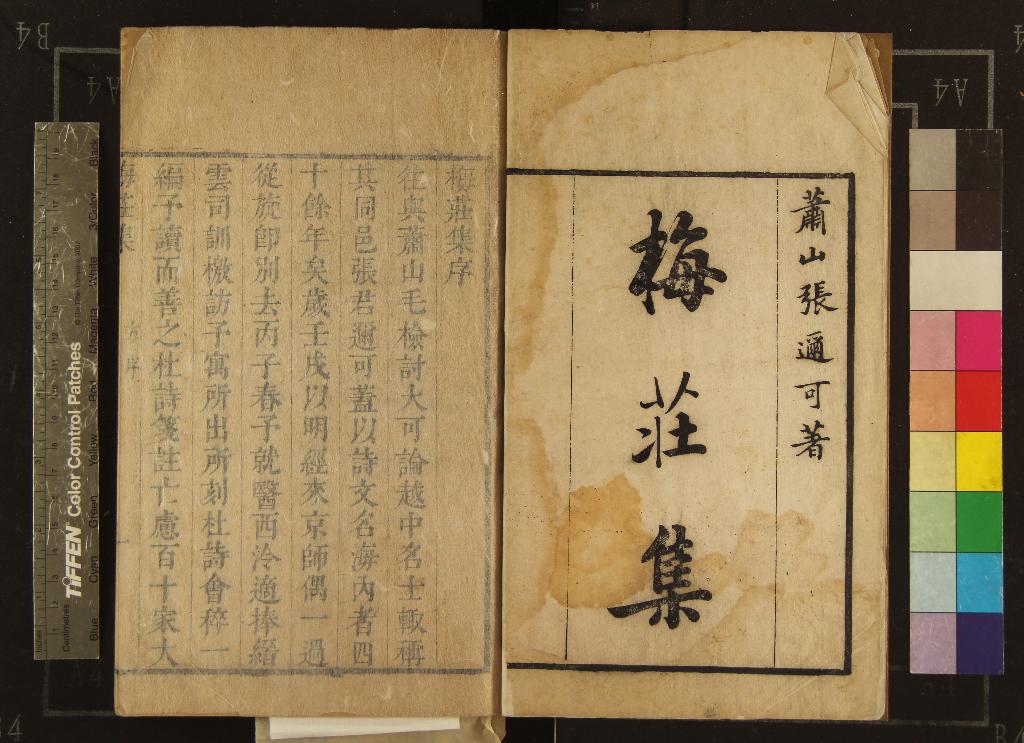 蕭山張邇可著
梅莊集
梅莊集序
往與蕭山毛檢討大可論越中名士輙稱
其同邑張君邇可蓋以詩文名海內者四
十餘年矣歲壬戌以明經來京師偶一過
從旋卽別去丙子春予就醫西泠適捧縉
雲司訓檄訪予寓所出所刻杜詩會稡一
編予讀而善之杜詩箋註亡慮百十家大
梅莊集
序
一
TIFFEN Color Control Patches
© The Tiffen Company, 2007
Inches
Centimetres
Blue
Cyan
Green
Yellow
Red
Magenta
White
3/Color
Black
B4
A4
A4
A4
B4